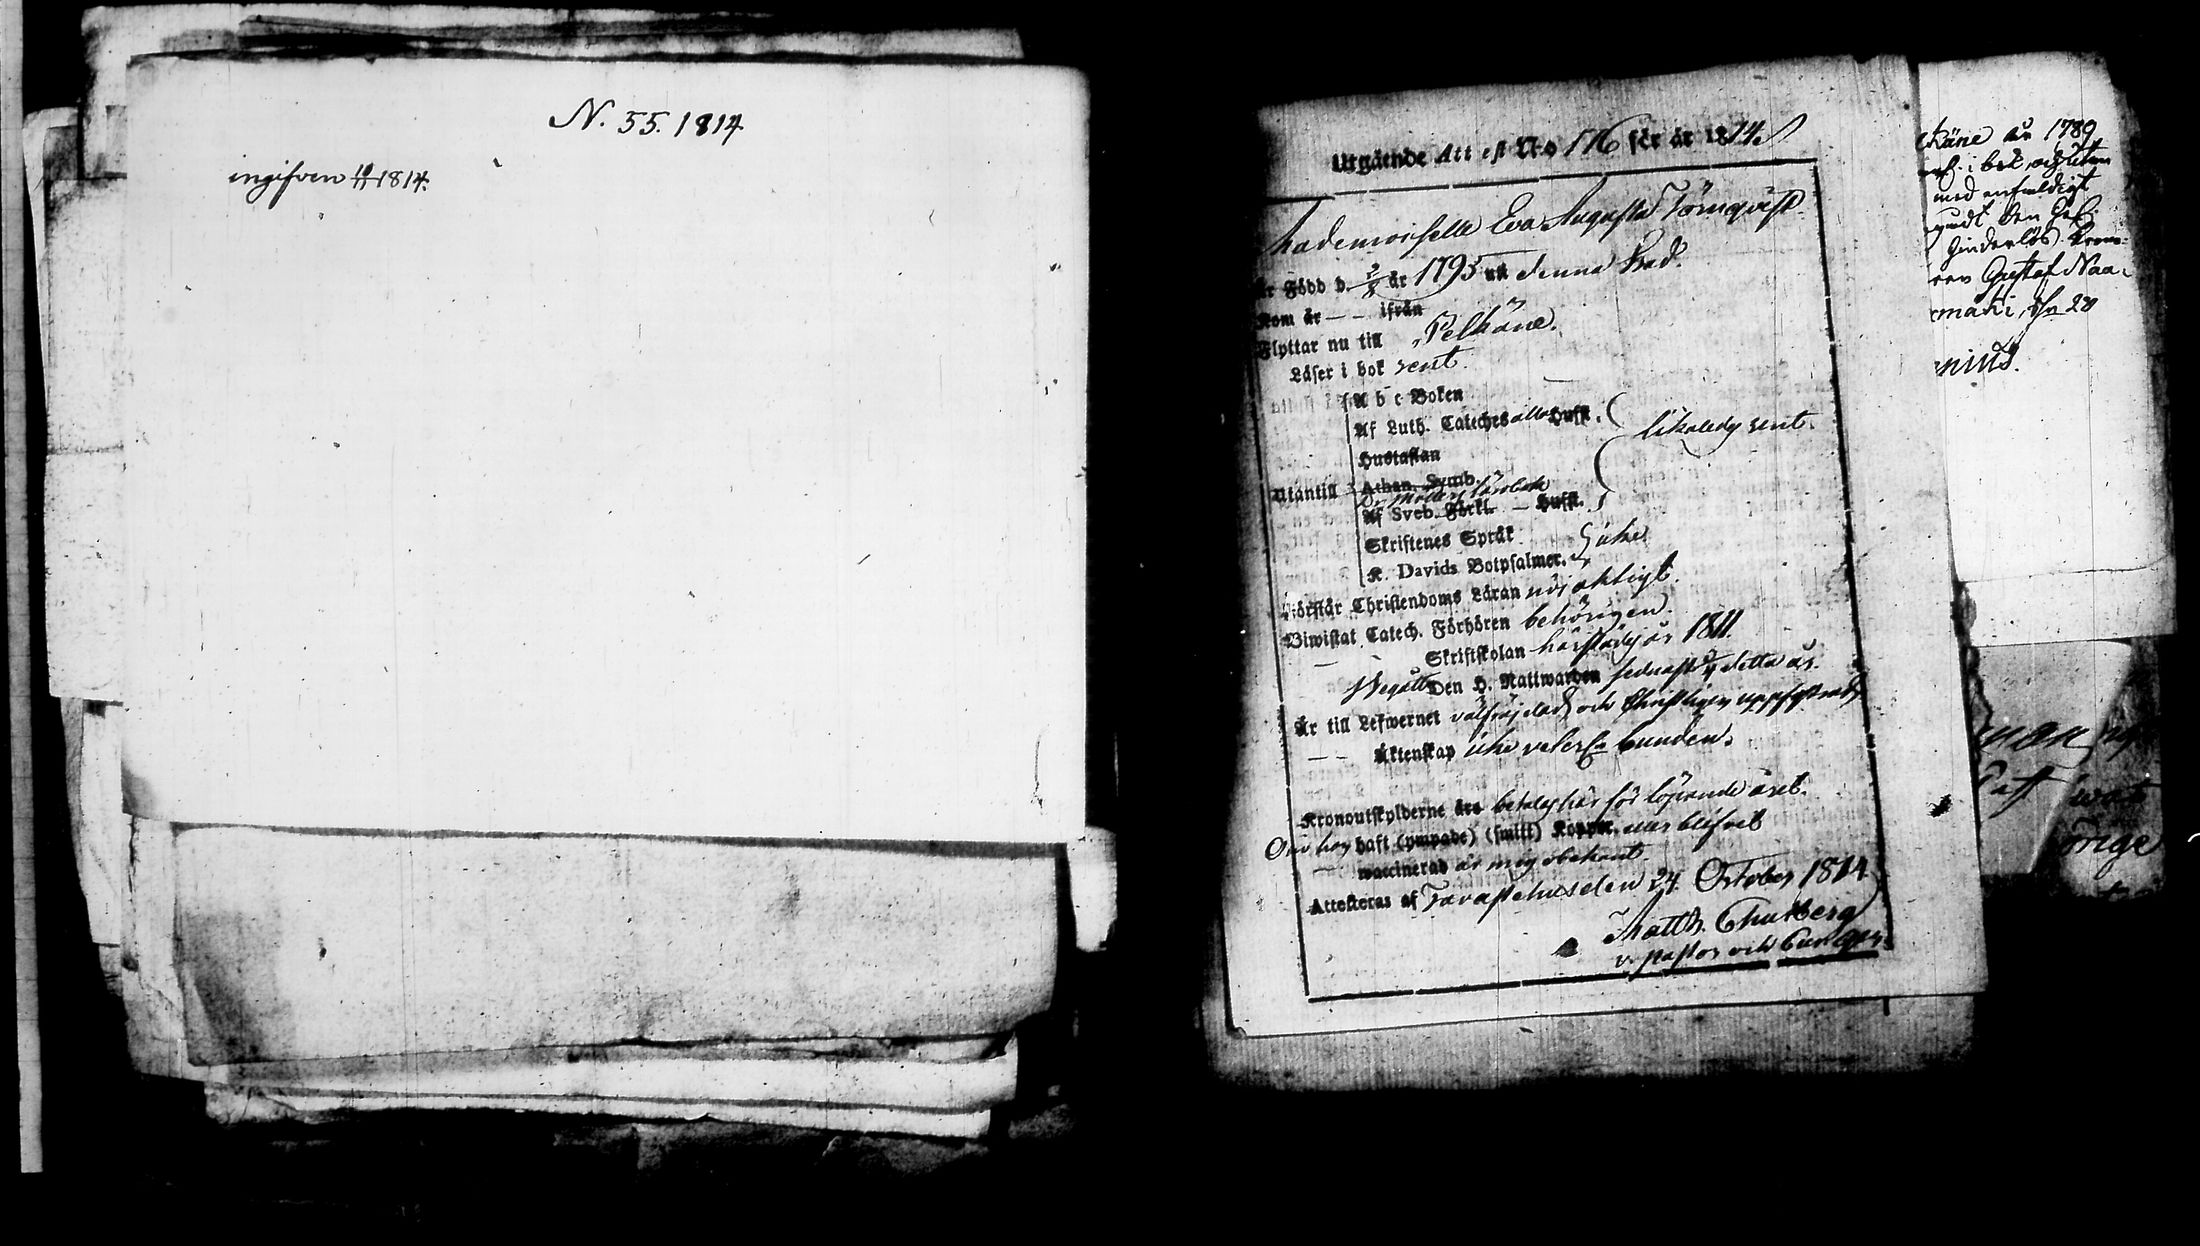 N. 55. 1814
ingifven 18/11 1814.
Utgående Attest No 116 för år 1814.
Mademoiselle Eva Augusta Törnqvist
Är Född d. 2/8 år 1795 uti denna Stad.
Kom år — — ifrån
Flyttar nu till Pelkäne.
Läser i bok rent.
A b c Boken
Af Luth. Cateches alla Hufst.
likaledes rent.
Hustaflan
Utantill
Athan. Symb.
Dr Möllers lärobok
Af Sveb. Förkl. — Hufst.
Skriftenes Språk
icke
K. Davids Botpsalmer.
Förstår Christendoms Läran nöjaktigt.
Biwistat Catech. Förhören behörigen.
— — Skriftskolan härstädes år 1811.
Begått Den H. Nattwarden sednast detta år.
Är till Lefwernet välfräjdad och Christligen uppförd
— — Äktenskap icke veterl. bunden.
Kronoutskylderne äro betalas här för löpande året.
Om hon haft (ympade) (smitt) Koppor, eller blifvit
— waccinerad är mig obekant.
Attesteras af Tavastehus den 24 October 1814
Matth. Thurberg
v. pastor och
käne år 1789
i bok, och utan
med enfaldigt
den
Gustaf Naa-
mäki,
20